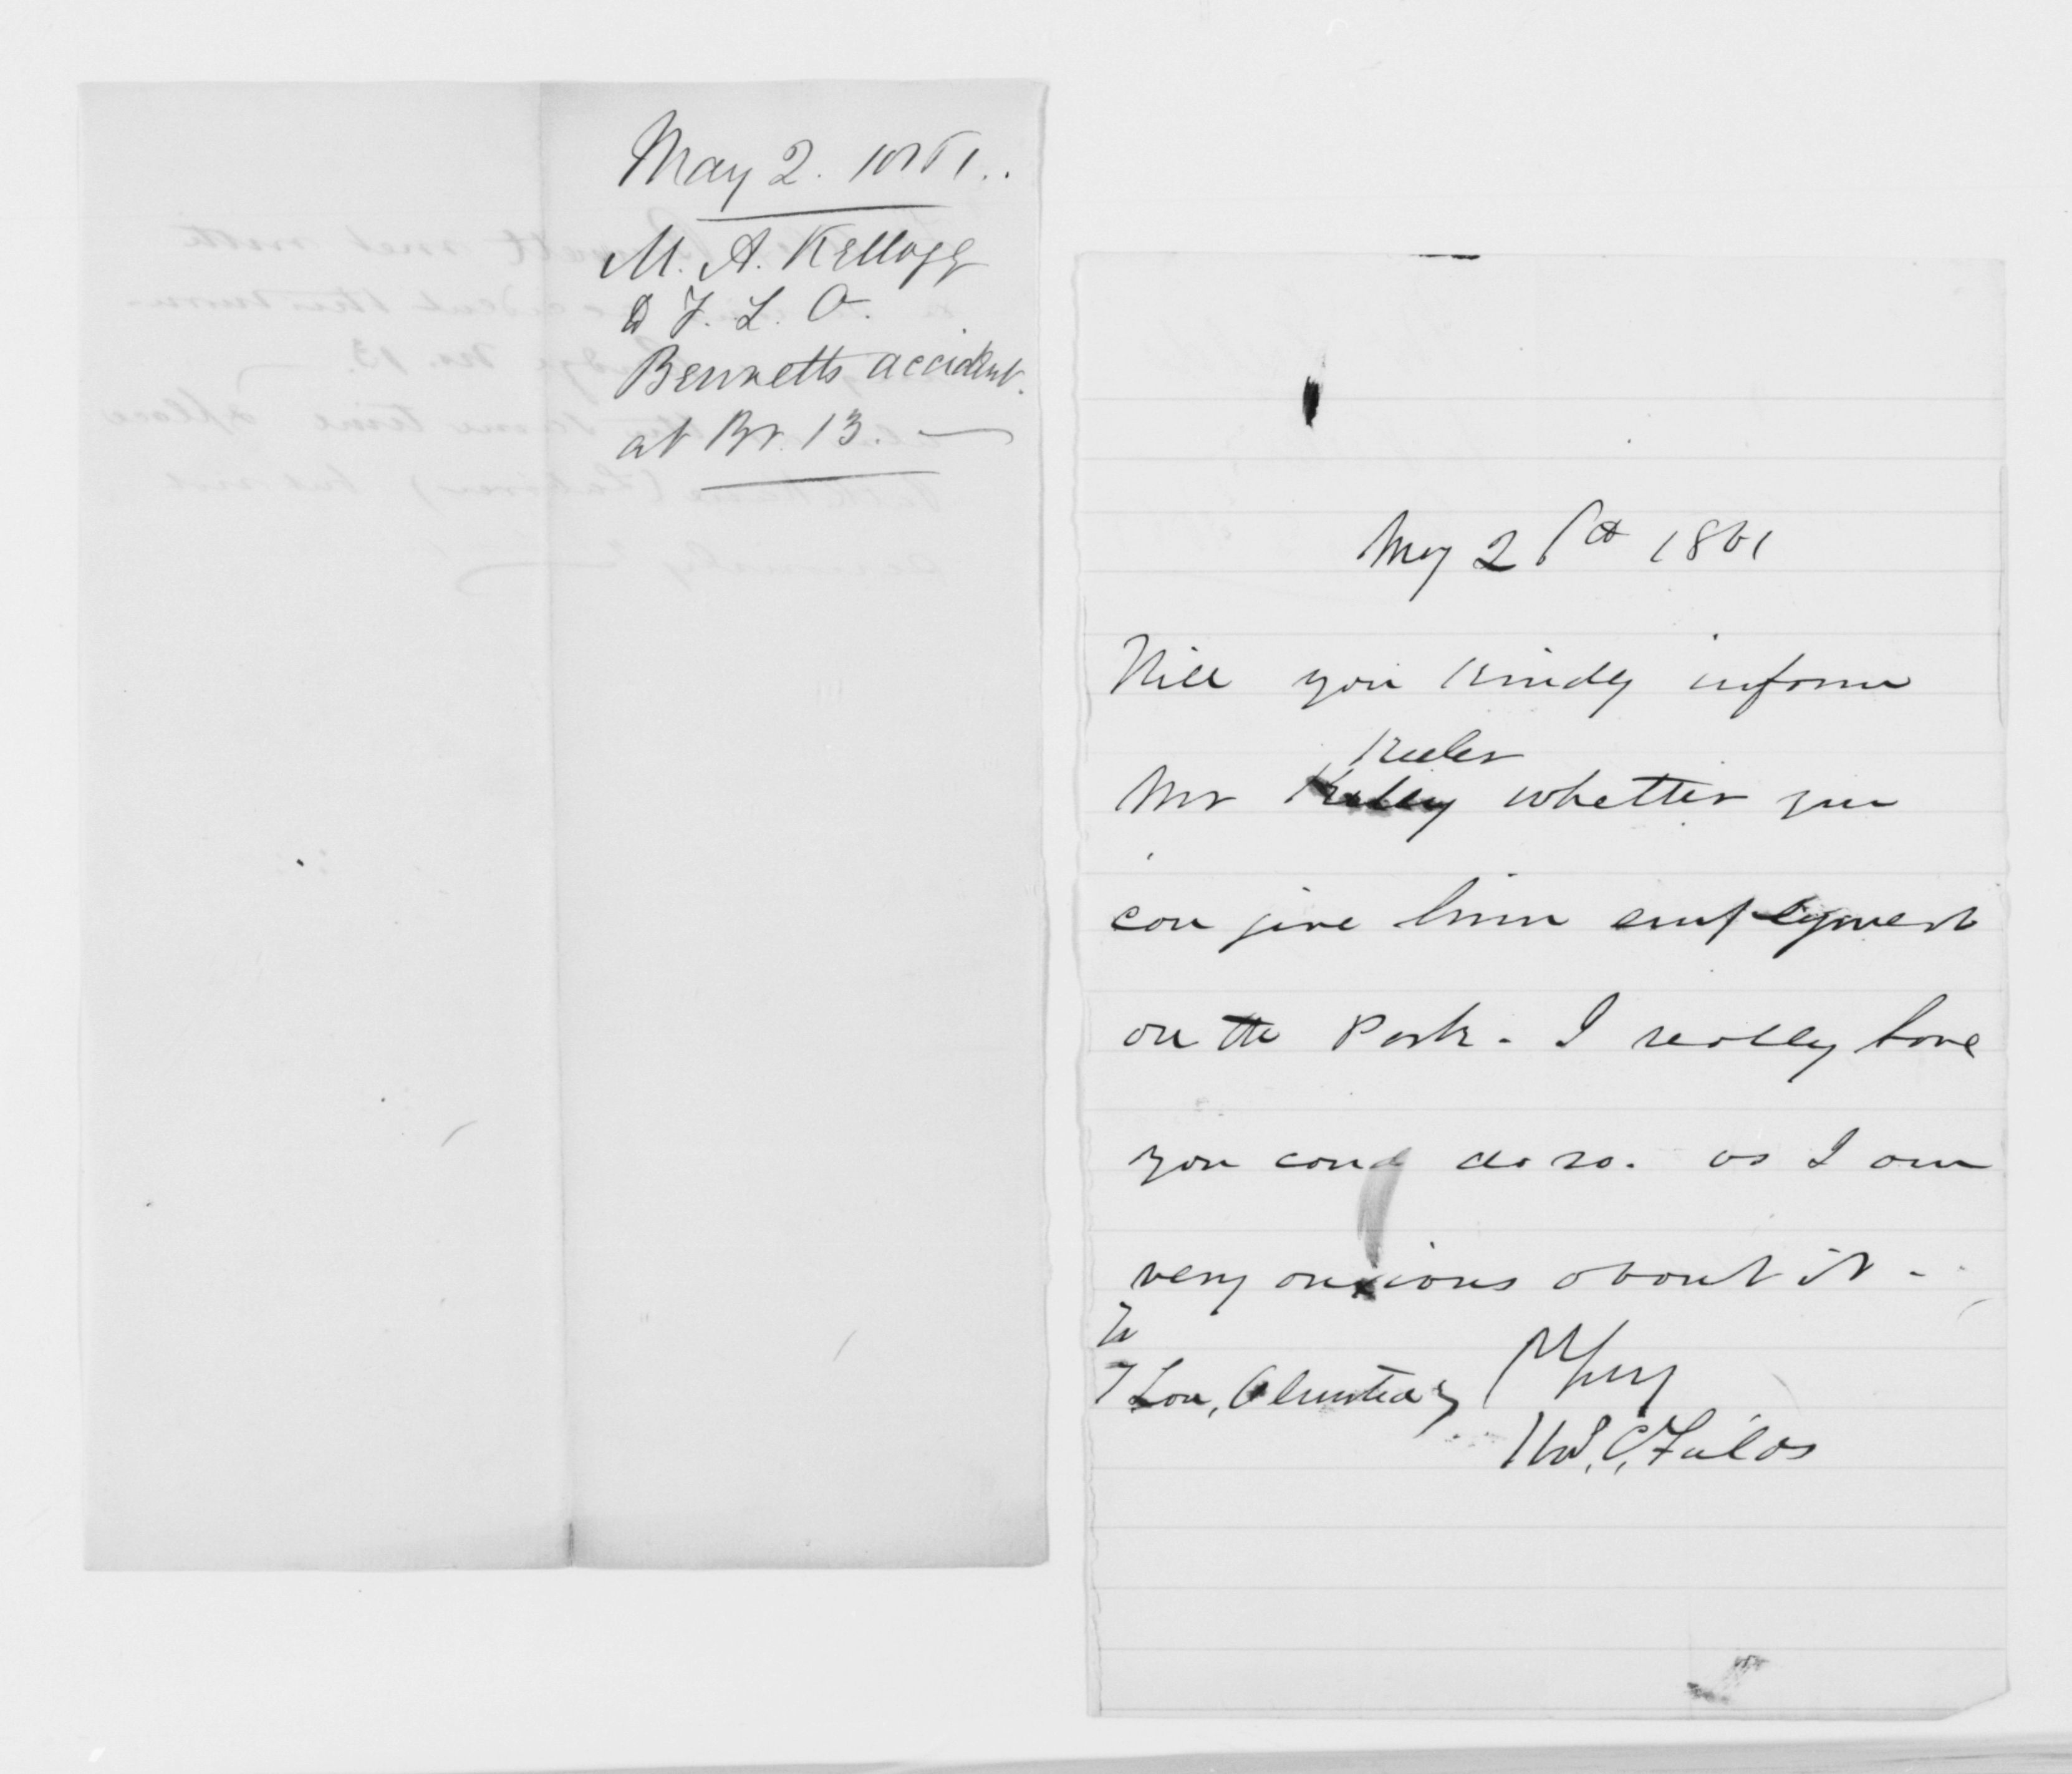 May 2. 1861..
M. A. Kellogg
to F. L. O.
Bennetts accident.
at Br. 13. —
May 26th 1861
Will you kindly inform
Keeler
Mr whether you
can give him employment
on the Park. I really hope
you can do so. as I am
very anxious about it -
To
F Law, Olmsted
Thos. C. Fields